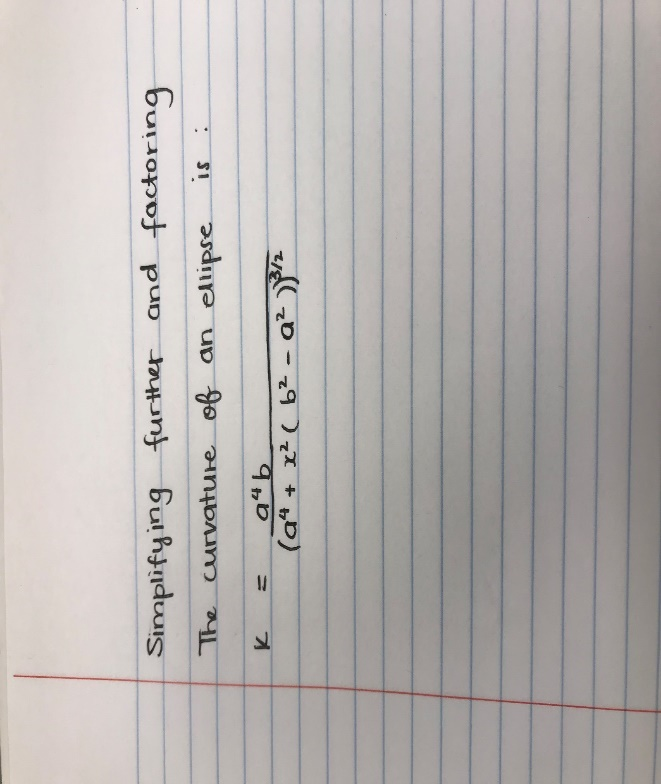 Simplifying further and factoring
The curvature of an ellipse is :
K = a⁴b / (a⁴ + x² ( b² - a² ))^3/2